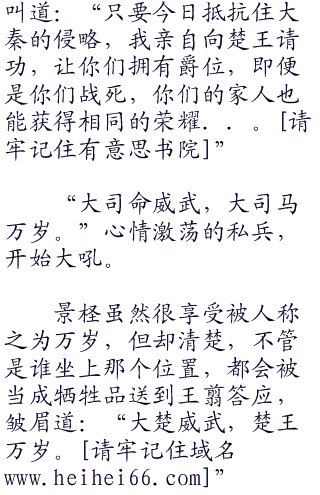 叫道：“只要今日抵抗住大
秦的侵略，我亲自向楚王请
功，让你们拥有爵位，即便
是你们战死，你们的家人也
能获得相同的荣耀．．。[请
牢记住有意思书院]”
“大司命威武，大司马
万岁。”心情激荡的私兵，
开始大吼。
景柽虽然很享受被人称
之为万岁，但却清楚，不管
是谁坐上那个位置，都会被
当成牺牲品送到王翦答应，
皱眉道：“大楚威武，楚王
万岁。[请牢记住域名
www.heihei66.com]”